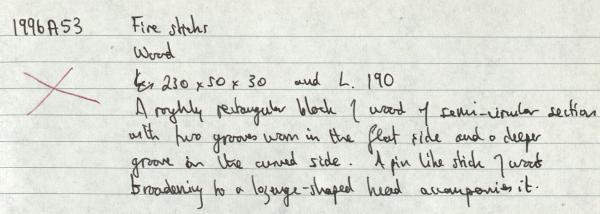 1996A53 Fire sticks
Wood
230 x 50 x 30 and L. 190
A roughly rectangular block of wood of semi-circular section
with two grooves worn in the flat side and a deeper
groove in the curved side. A pin like stick of wood
broadening to a lozenge-shaped head accompanies it.